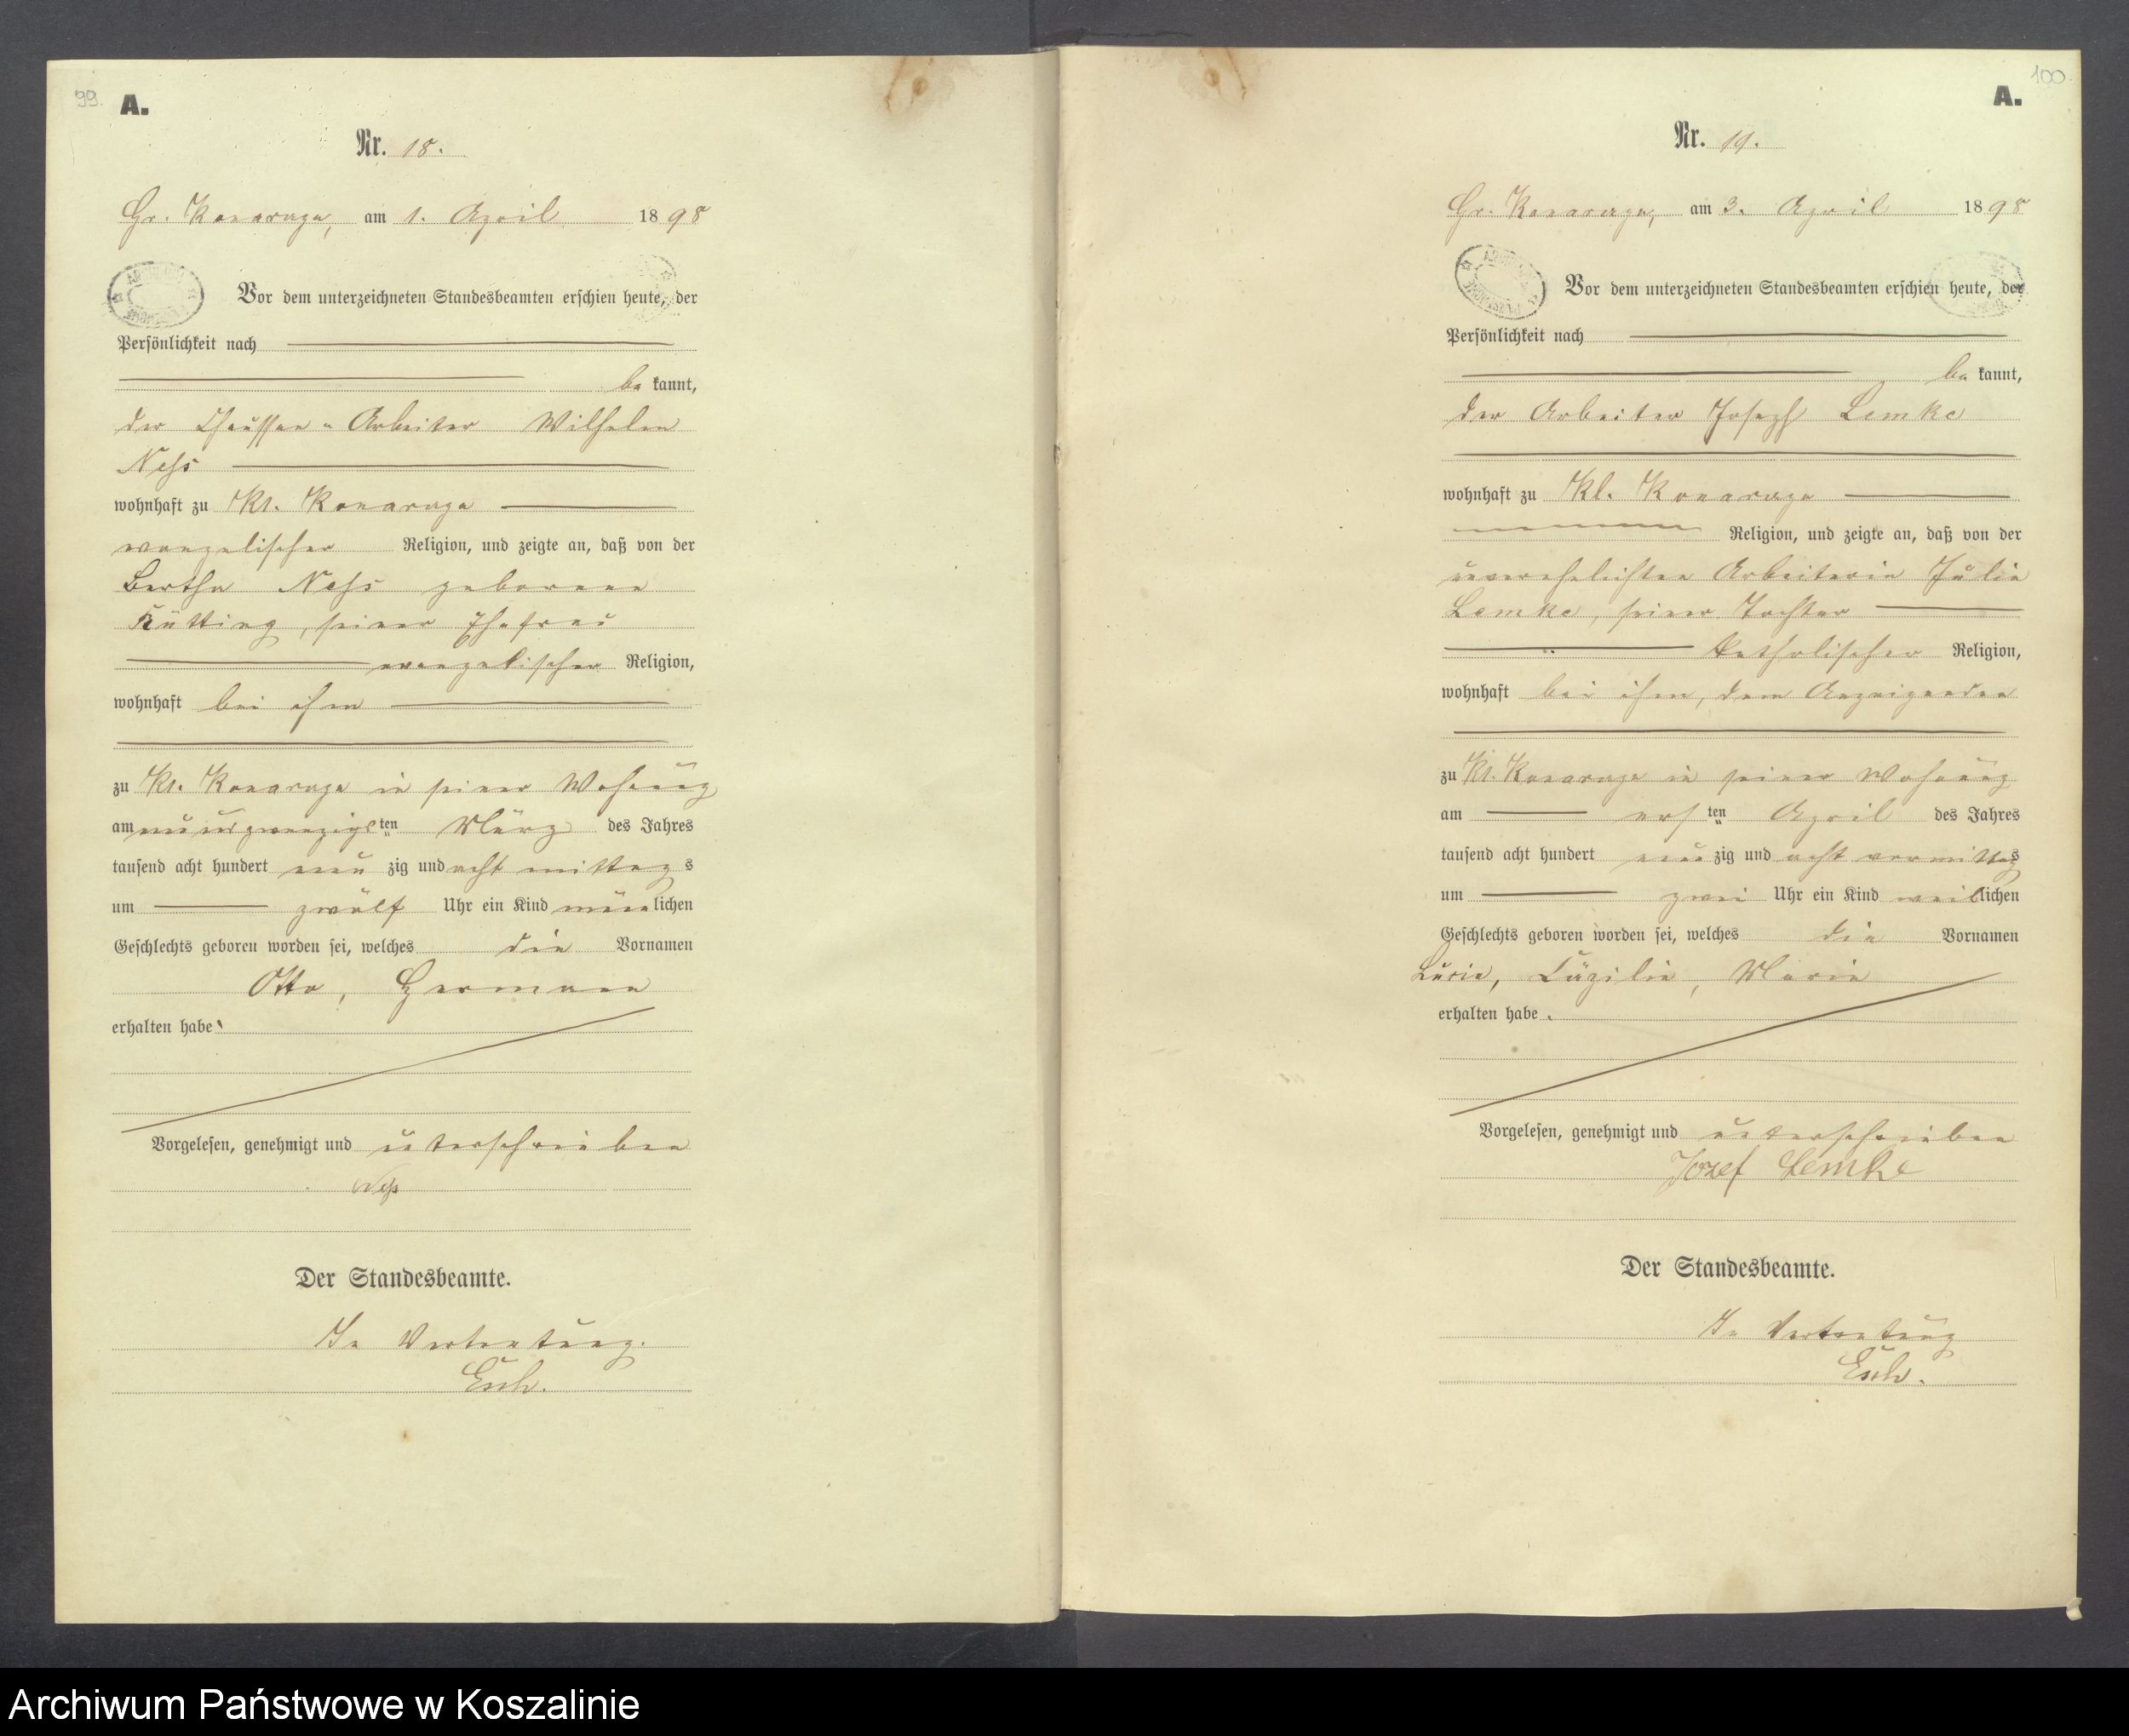 99.
A.
Nr. 18.
Gr. Konarczyn, am 1. April 1898
Vor dem unterzeichneten Standesbeamten erschien heute, der
Persönlichkeit nach
bekannt,
der Chaussee-Arbeiter Wilhelm
Ness
wohnhaft zu Kl. Konarczyn
evangelischer Religion, und zeigte an, daß von der
Bertha Ness geborene
Kütting, seiner Ehefrau
evangelischer Religion,
wohnhaft bei ihm
zu Kl. Konarczyn in seiner Wohnung
am neunundzwanzigsten März des Jahres
tausend acht hundert neunzig und acht mittags
um zwölf Uhr ein Kind männlichen
Geschlechts geboren worden sei, welches die Vornamen
Otto, Hermann
erhalten habe.
Vorgelesen, genehmigt und unterschrieben
Ness
Der Standesbeamte.
In Vertretung.
100
A.
Nr. 19.
Gr. Konarczyn, am 3. April 1898
Vor dem unterzeichneten Standesbeamten erschien heute, der
Persönlichkeit nach
bekannt,
der Arbeiter Joseph Lemke
wohnhaft zu Kl. Konarczyn
Religion, und zeigte an, daß von der
unverehelichten Arbeiterin Julie
Lemke, seiner Tochter
katholischer Religion,
wohnhaft bei ihm, dem Anzeigenden
zu Kl. Konarczyn in seiner Wohnung
am ersten April des Jahres
tausend acht hundert neunzig und acht vormittags
um zwei Uhr ein Kind weiblichen
Geschlechts geboren worden sei, welches die Vornamen
Lucie, Cäzilie, Marie
erhalten habe.
Vorgelesen, genehmigt und unterschrieben
Jozef Lemke
Der Standesbeamte.
In Vertretung
Archiwum Państwowe w Koszalinie